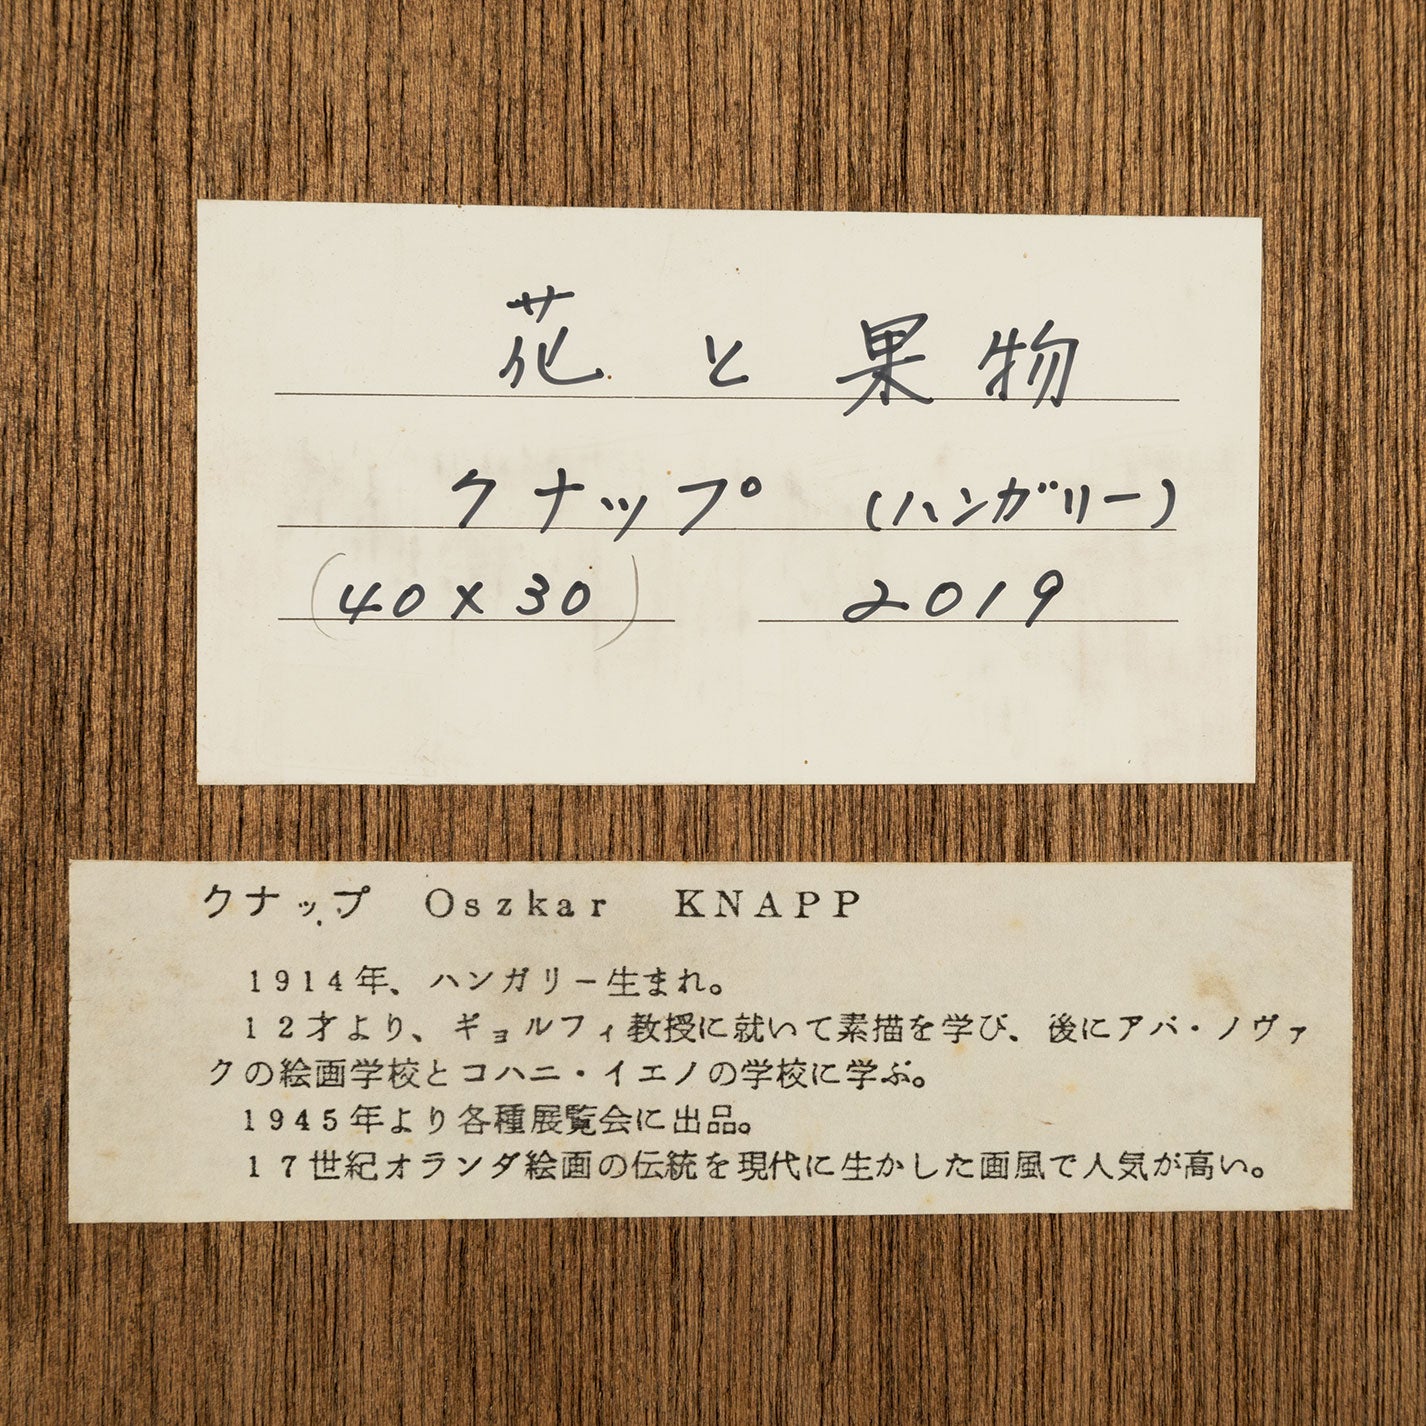 花と果物
クナップ (ハンガリー)
(40×30) 2019
クナップ Oszkar KNAPP
1914年、ハンガリー生まれ。
12才より、ギョルフィ教授に就いて素描を学び、後にアバ・ノヴァ
クの絵画学校とコハニ・イエノの学校に学ぶ。
1945年より各種展覧会に出品。
17世紀オランダ絵画の伝統を現代に生かした画風で人気が高い。